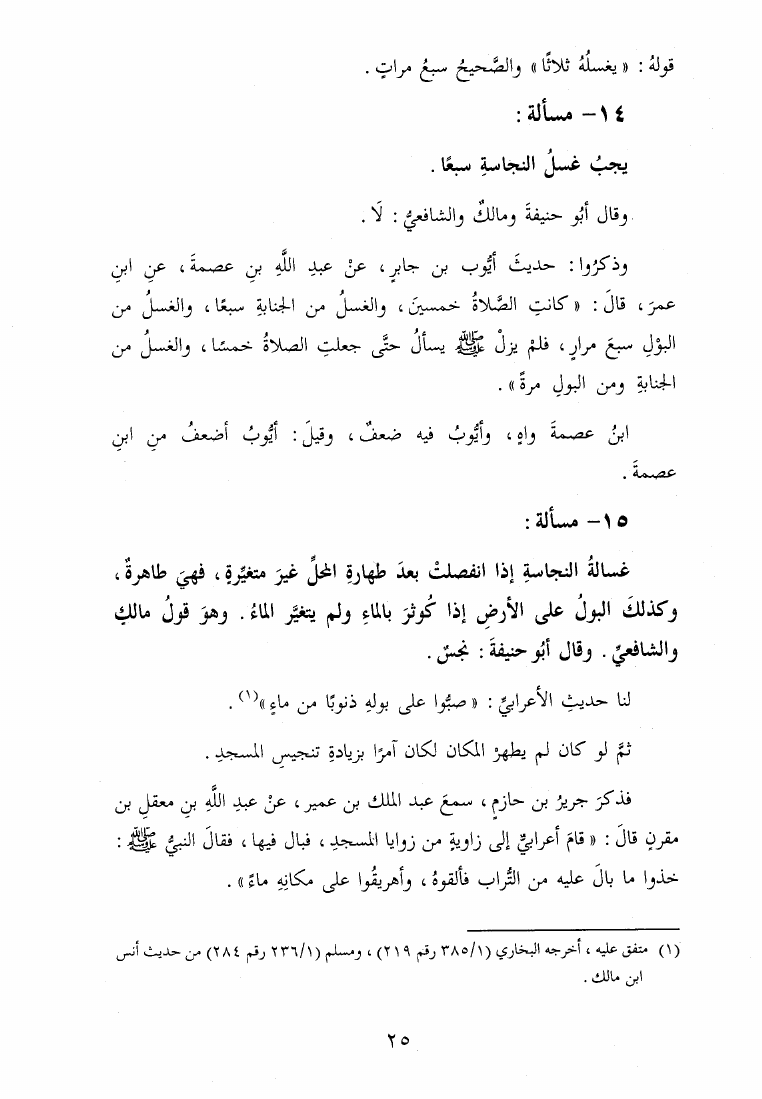 قولهُ : « يغسلُهُ ثلاثًا » والصَّحيحُ سبعُ مراتٍ .
١٤- مسألة :
يجبُ غسلُ النجاسةِ سبعًا .
وقال أبُو حنيفةَ ومالكٌ والشافعيُّ : لَا .
وذكرُوا : حديثَ أيُّوب بن جابرٍ ، عنْ عبدِ اللَّهِ بنِ عصمةَ ، عنِ ابنِ
عمرَ ، قالَ : « كانتِ الصَّلاةُ خمسينَ ، والغسلُ من الجنابةِ سبعًا ، والغسلُ من
البوْلِ سبعَ مرارٍ ، فلمْ يزلْ ﷺ يسألُ حتَّى جعلتِ الصلاةُ خمسًا ، والغسلُ من
الجنابةِ ومن البولِ مرةً » .
ابنُ عصمةَ واهٍ ، وأيُّوبُ فيه ضعفٌ ، وقيلَ : أيُّوبُ أضعفُ منِ ابنِ
عصمةَ .
١٥- مسألة :
غسالةُ النجاسةِ إذا انفصلتْ بعدَ طهارةِ المحلِّ غيرَ متغيِّرةٍ ، فهيَ طاهرةٌ ،
وكذلكَ البولُ على الأرضِ إذا كُوثرَ بالماءِ ولم يتغيَّر الماءُ . وهوَ قولُ مالكٍ
والشافعيِّ . وقال أبُو حنيفةَ : نجسٌ .
لنا حديثِ الأعرابيِّ : « صبُّوا على بولهِ ذنوبًا من ماءٍ »(١) .
ثمَّ لو كان لم يطهرْ المكان لكان آمرًا بزيادةِ تنجيسِ المسجدِ .
فذكرَ جريرُ بن حازمٍ ، سمعَ عبد الملك بن عمير ، عنْ عبدِ اللَّهِ بنِ معقلِ بن
مقرنٍ قالَ : « قامَ أعرابيٌّ إلى زاويةٍ من زوايا المسجدِ ، فبال فيها ، فقالَ النبيُّ ﷺ :
خذوا ما بالَ عليه من التُّراب فألقوهُ ، وأهريقُوا على مكانِهِ ماءً » .
(١) متفق عليه ، أخرجه البخاري (٣٨٥/١ رقم ٢١٩) ، ومسلم (٢٣٦/١ رقم ٢٨٤) من حديث أنس
ابن مالك .
٢٥